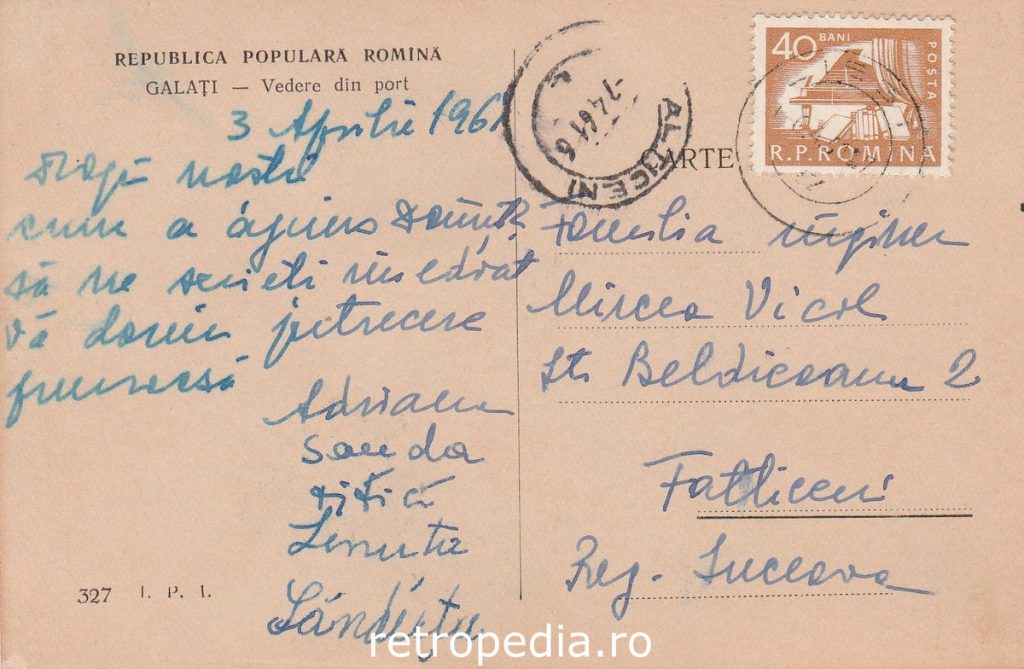 REPUBLICA POPULARĂ ROMÎNĂ
GALAȚI — Vedere din port
3 Aprilie 1961
Dragii noștri
cum a ajuns
să ne scrieți imediat
Vă dorim petrecere
frumoasă
Adriana
Sanda
Titică
Lenuța
Sănduța
327 I. P. I.
40 BANI
POSTA
R.P.ROMINA
FALTICENI
-7.4.61.8
CARTE
Familia inginer
Mircea Vicol
Str Beldiceanu 2
Falticeni
Reg. Suceava
retropedia.ro